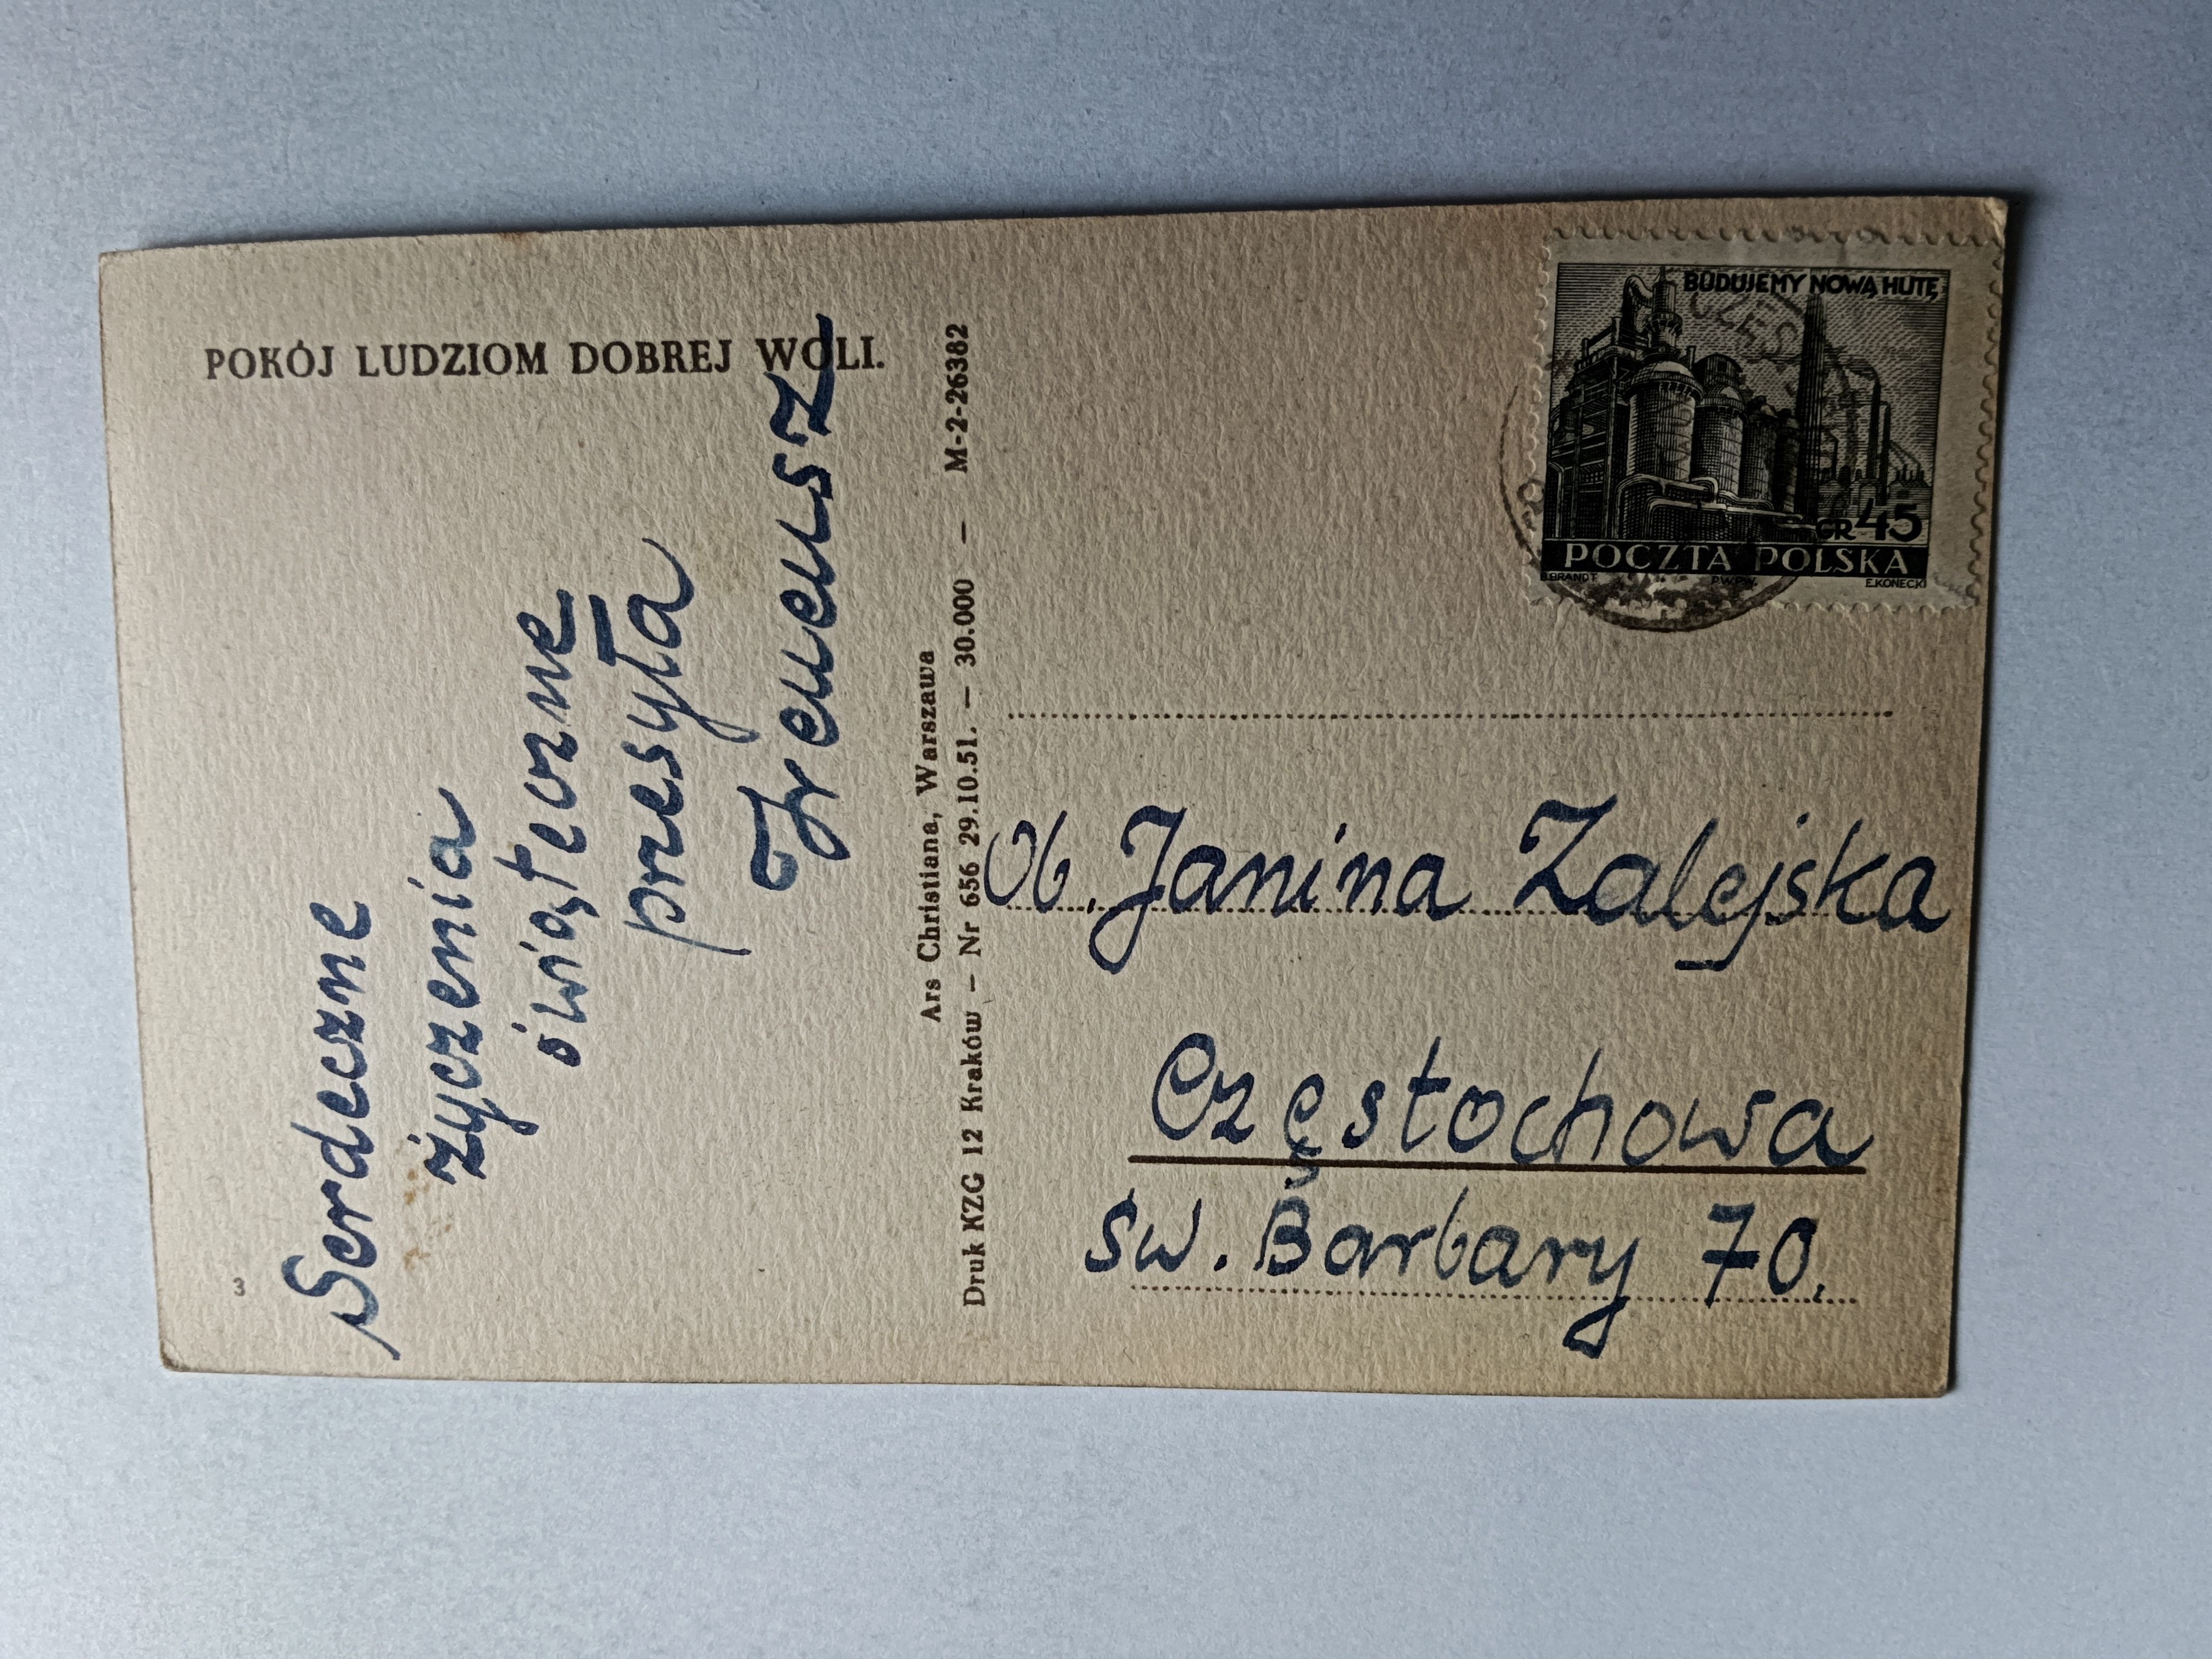 POKÓJ LUDZIOM DOBREJ WOLI.
Serdeczne
życzenia
świąteczne
przesyła
Ireneusz
3
Ars Christiana, Warszawa
Druk KZG 12 Kraków — Nr 656 29.10.51. — 30.000 — M-2-26382
BUDUJEMY NOWĄ HUTĘ
GR 45
POCZTA POLSKA
B.BRANDT P.W.P.W. E.KONECKI
Ob. Janina Zalejska
Częstochowa
Św. Barbary 70.